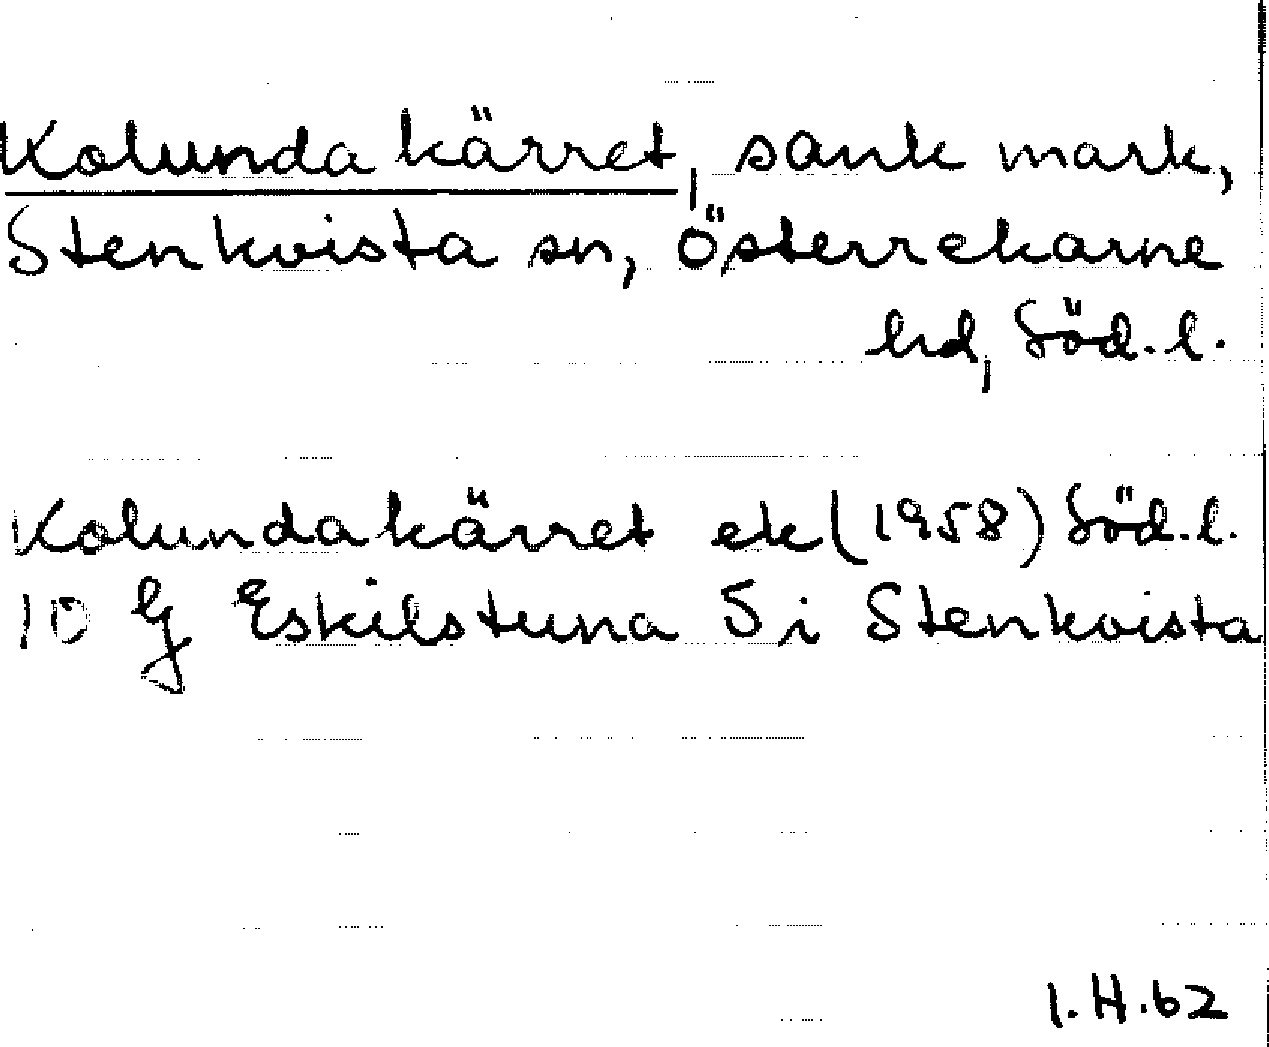 Kolundakärret, sank mark,
Stenkvista sn, Österrekarne
hd, Söd.l.
Kolundakärret ek (1958) Söd.l.
10 G Eskilstuna S i Stenkvista
I.H.62